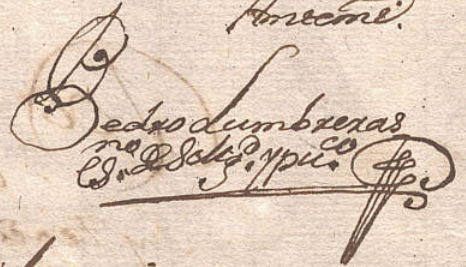 Ante mi.
Pedro Lumbreras
es.no de su mg.d y pu.co